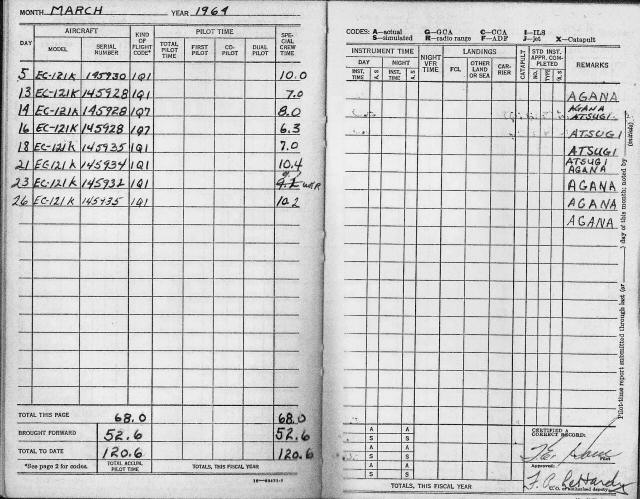 MONTH MARCH YEAR 1964
DAY AIRCRAFT KIND OF FLIGHT CODE* PILOT TIME SPECIAL CREW TIME
MODEL SERIAL NUMBER TOTAL PILOT TIME FIRST PILOT CO-PILOT DUAL PILOT
5 EC-121K 145930 1Q1 10.0
13 EC-121K 145928 1Q1 7.0
14 EC-121K 145928 1Q7 8.0
16 EC-121K 145928 1Q7 6.3
18 EC-121K 145935 1Q1 7.0
21 EC-121K 145934 1Q1 10.4
23 EC-121K 145932 1Q1
26 EC-121K 145935 1Q1 10.2
TOTAL THIS PAGE 68.0 68.0
BROUGHT FORWARD 52.6 52.6
TOTAL TO DATE 120.6 120.6
*See page 2 for codes. TOTAL ACCUM. PILOT TIME TOTALS, THIS FISCAL YEAR
CODES: A—actual G—GCA C—CCA I—ILS
S—simulated R—radio range F—ADF J—jet X—Catapult
INSTRUMENT TIME NIGHT VFR TIME LANDINGS CATAPULT STD INST. APPR. COMPLETED REMARKS
DAY NIGHT FCL OTHER LAND OR SEA CARRIER NO. TYPE
INST. TIME A.S. INST. TIME A.S.
AGANA
AGANA
ATSUGI
ATSUGI
ATSUGI
ATSUGI
AGANA
AGANA
AGANA
AGANA
Pilot-time report submitted through last (or day of this month; noted by (initials)
A A
S S
A A
S S
A A
S S
CERTIFIED A CORRECT RECORD:
Pilot
Approved:
C.O. or authorized deputy
TOTALS, THIS FISCAL YEAR